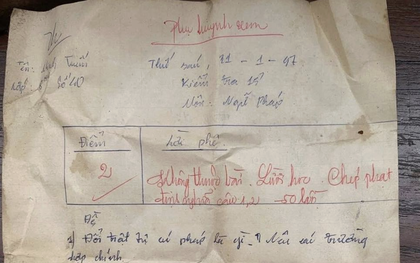 Phụ huynh xem
Tên: Tuấn
Thứ sáu, 31 - 1 - 97
Lớp:
Kiểm tra 15'
Môn: Ngữ Pháp
Điểm
Lời phê:
2
Không thuộc bài. Lười học. Chép phạt
câu 1, 2 50 lần
Đề
1) Đổi trật tự cú pháp là gì, Nêu các trường
hợp chính